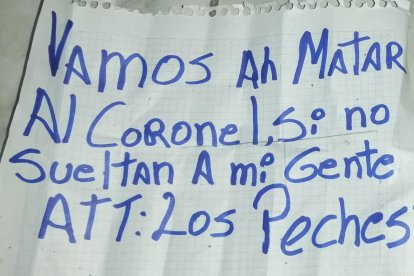 VAMOS Ah MATAR
Al CORONel, Si no
SuelTAN A mi Gente
ATT: Los Peches